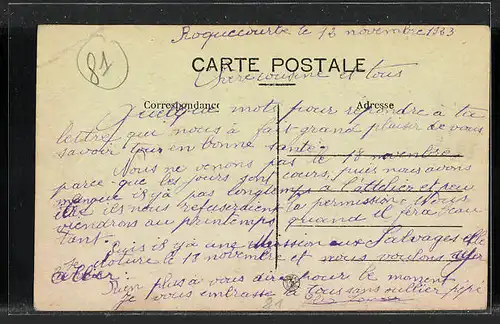 Roquecourbe le 12 novembre 1933
81
CARTE POSTALE
Chère cousine et tous
Correspondance
Adresse
Quelque mots pour repondre à ta
lettre que nous à fait grand plaisir de vous
savoir tous en bonne santé.
Nous ne venons pas le 18 novembre
parce que les jours sont cours, puis nous avons
manque il y à pas longtemps à l'attelier et peu
être ils nous refuserdient la permission. Nous
viendrons au printemps quand il fera beau
tant.
Puis il y à une mission aux Salvages elle
se cloture le 18 novembre et nous voulons
aller.
Rien plus à vous dire pour le moment
je vous embrasse à tous sans oublier pépi
81